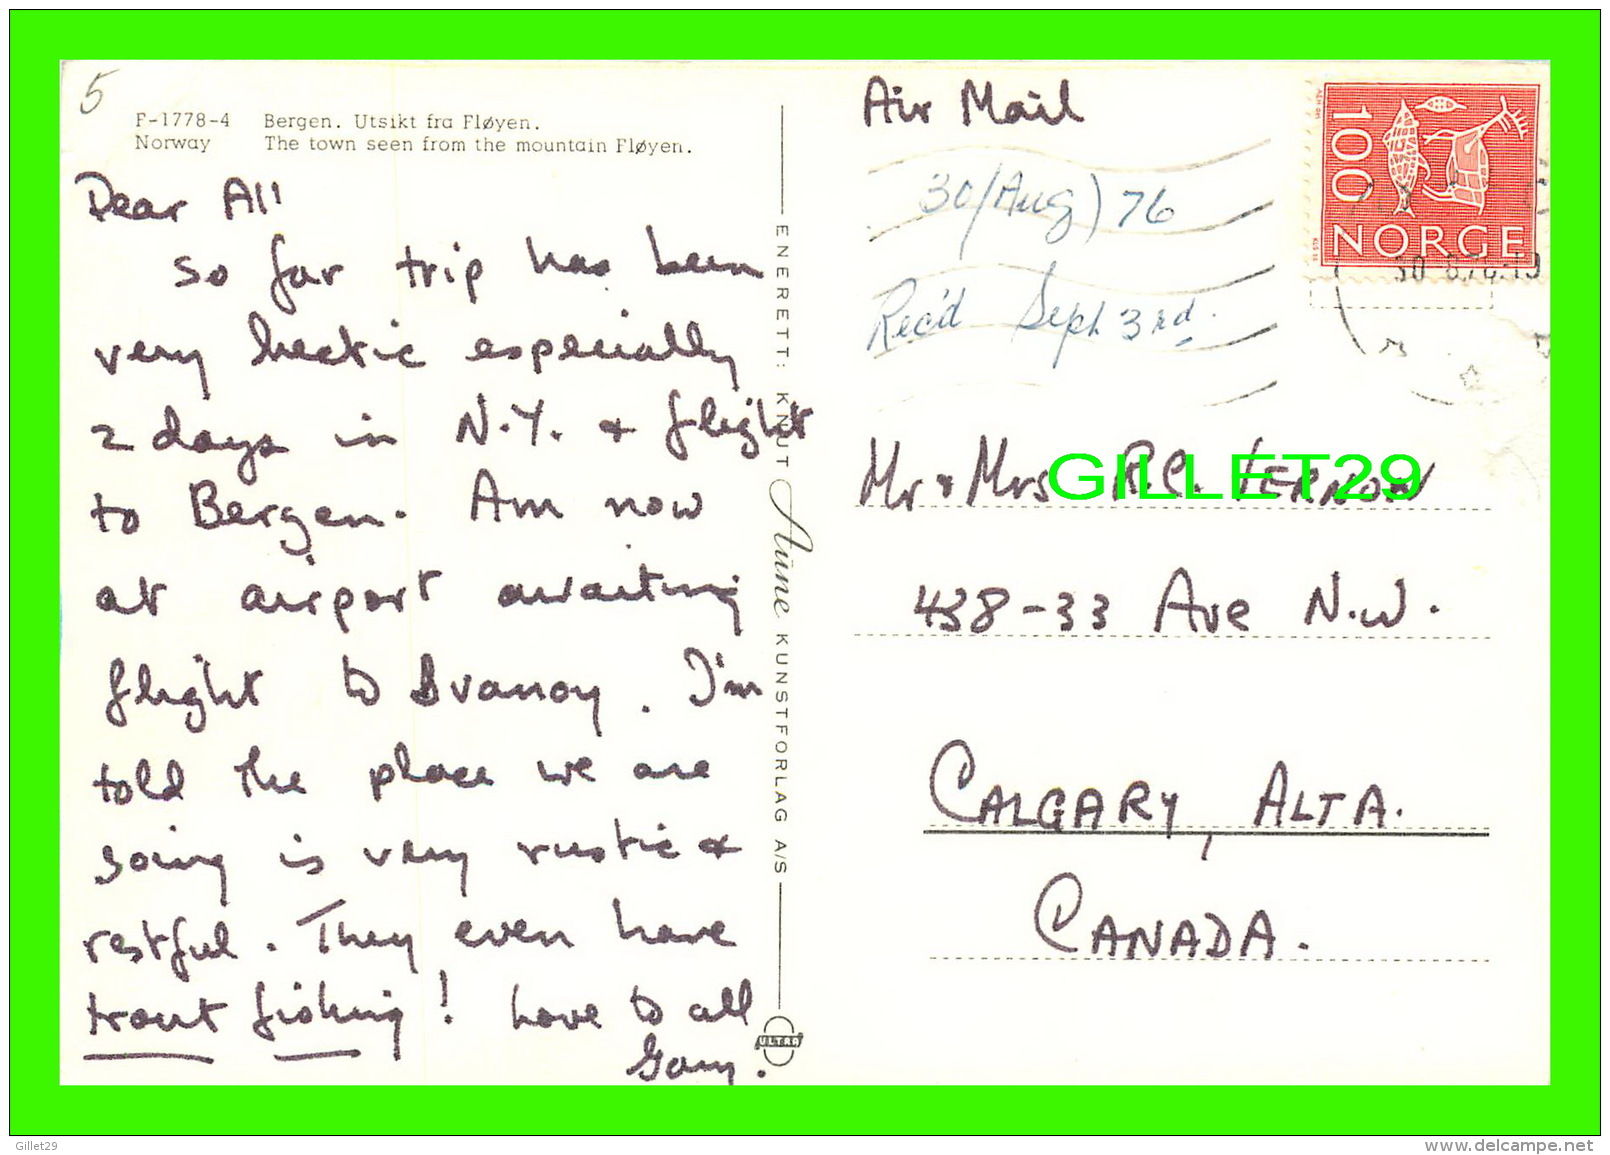 5
F-1778-4 Bergen. Utsikt fra Fløyen.
Norway The town seen from the mountain Fløyen.
Dear All
So far trip has been
very hectic especially
2 days in N.Y. & flight
to Bergen. Am now
at airport awaiting
flight to Svanoy. I'm
told the place we are
going is very rustic &
restful. They even have
trout fishing! Love to all
Gary.
ENERETT: KNUT Aune KUNSTFORLAG A/S
ULTRA
Air Mail
30/Aug) 76
Rec'd Sept 3rd.
100
NORGE
Mr & Mrs R.C. VERNON
GILLET29
438-33 Ave N.W.
CALGARY, ALTA.
CANADA.
Gillet29
www.delcampe.net